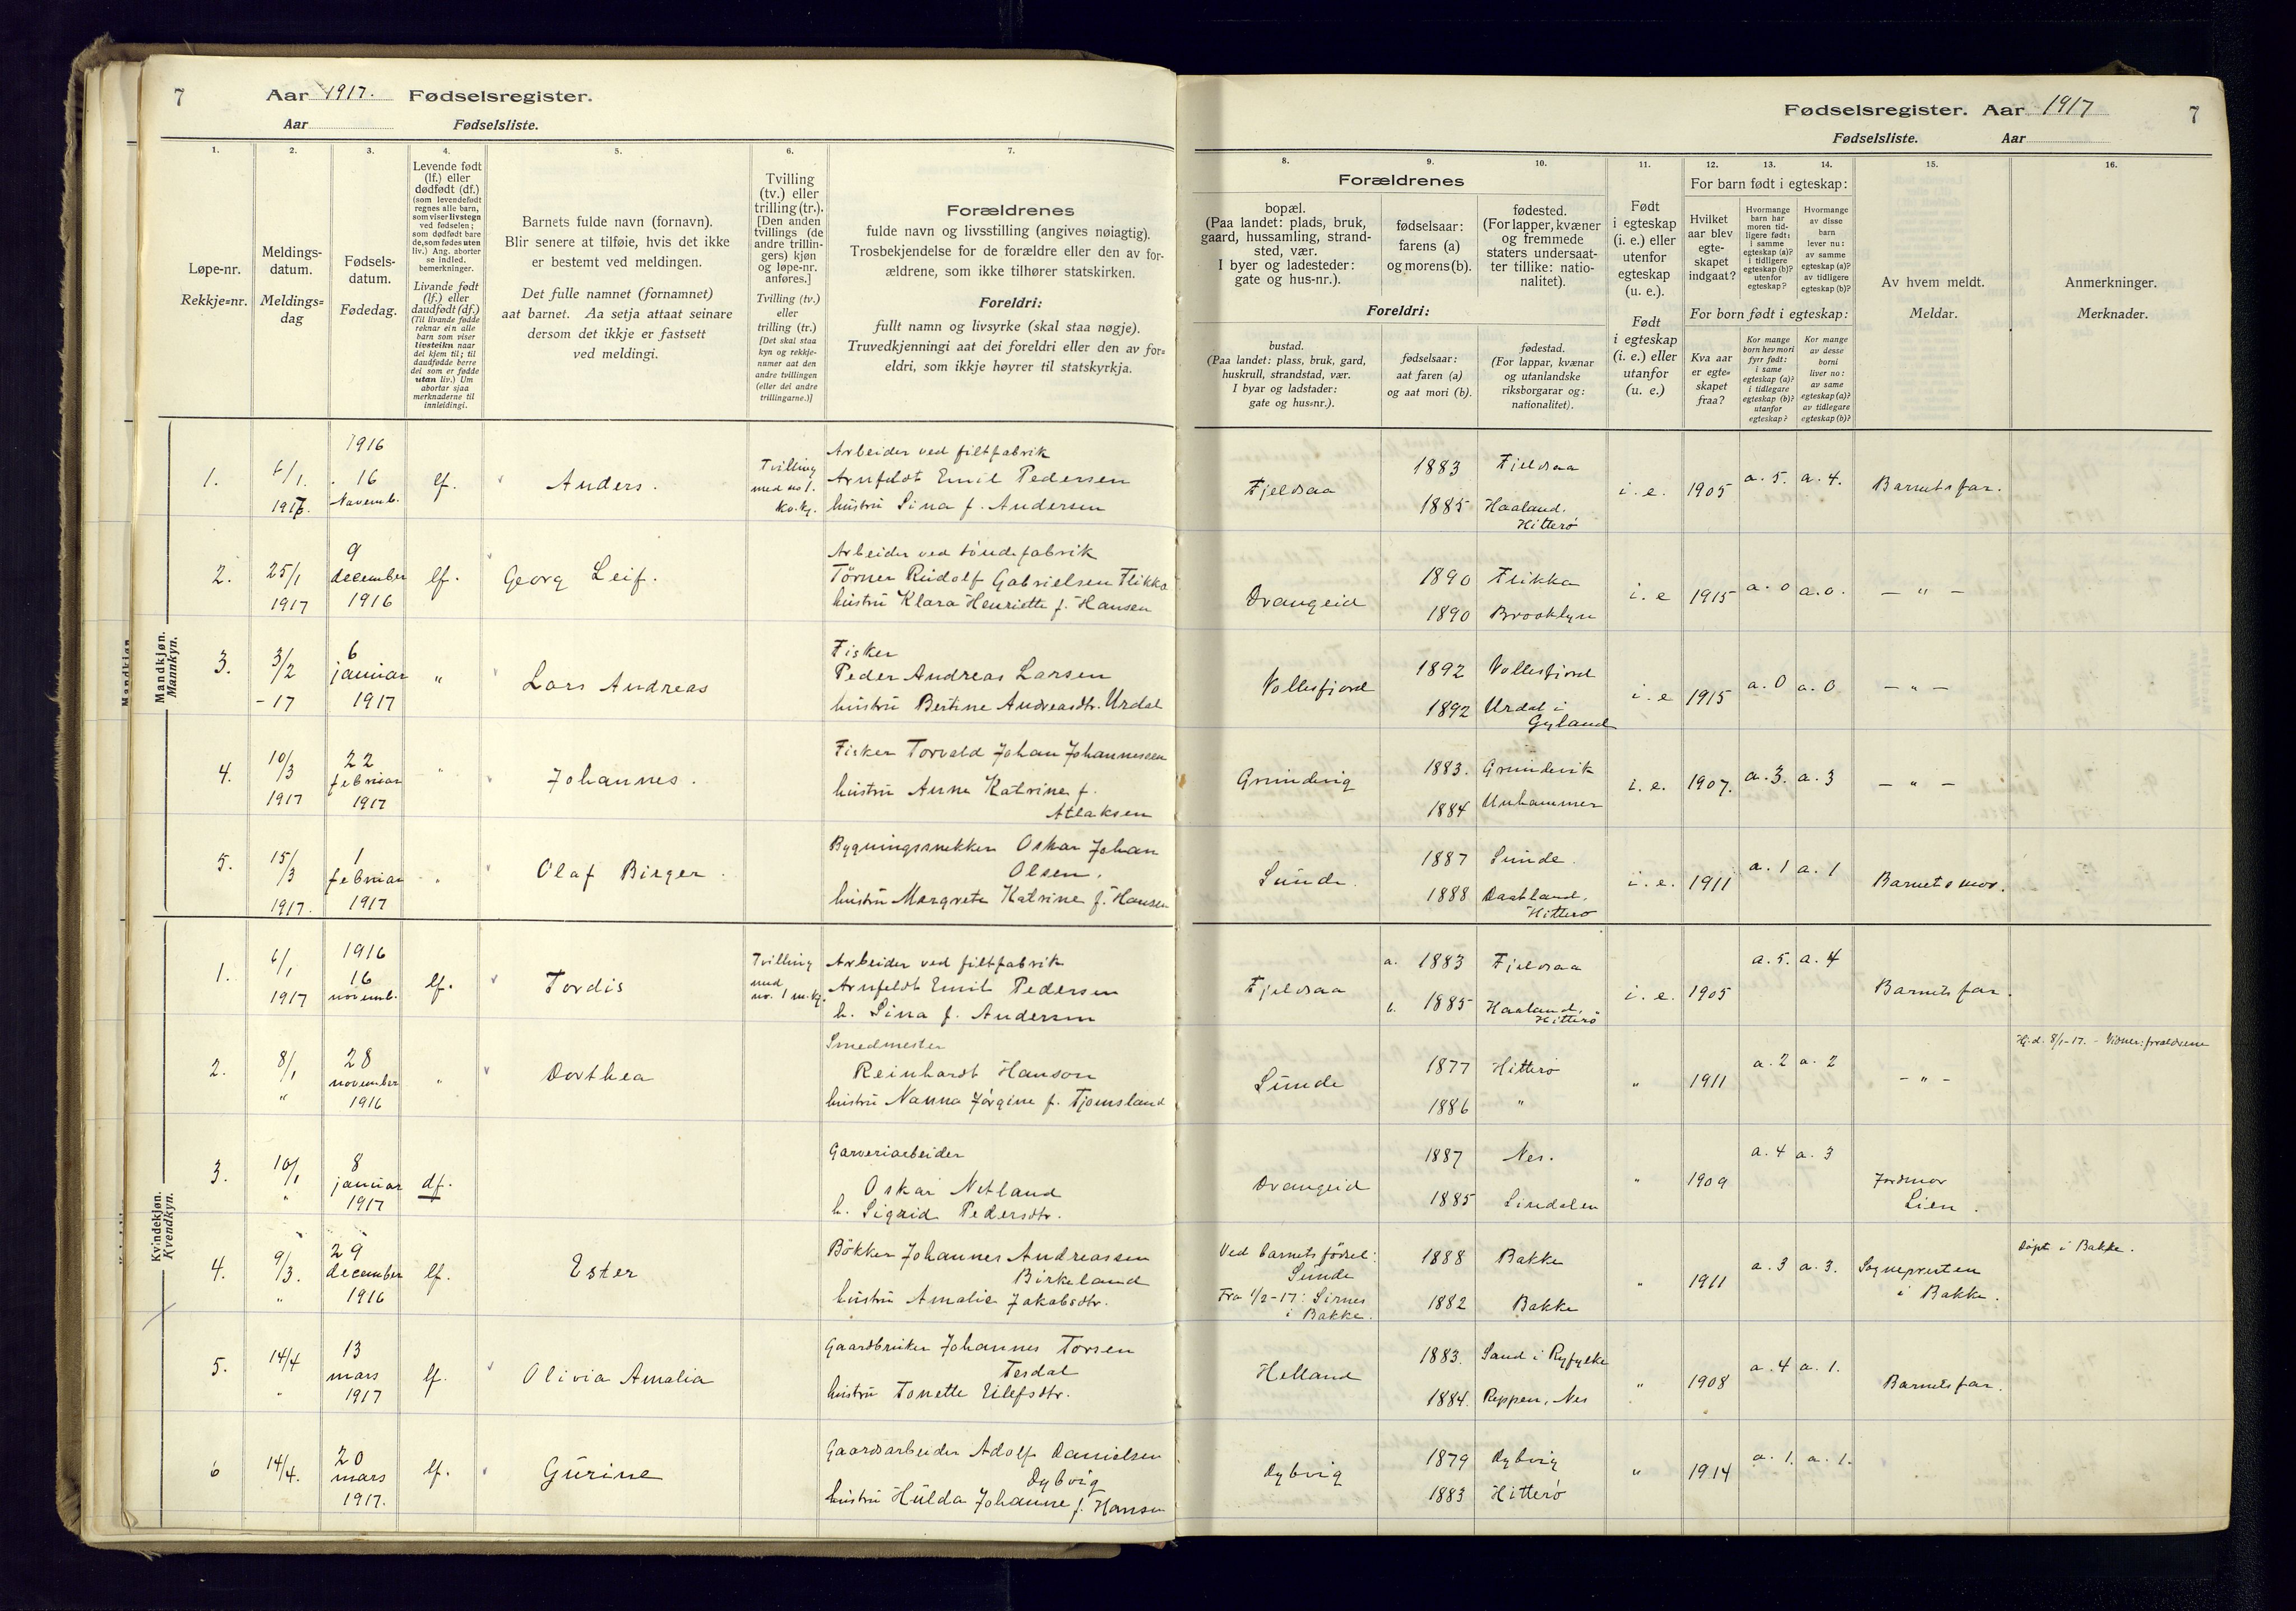 7 Aar 1917. Fødselsregister.
Aar Fødselsliste.
1. 2. 3. 4. 5. 6. 7.
Løpe-nr.
Rekkje=nr.
Meldings-
datum.
Meldings=
dag
Fødsels-
datum.
Fødedag.
Levende født
(lf.) eller
dødfødt (df.)
(som levendefødt
regnes alle barn,
som viser livstegn
ved fødselen;
som dødfødt bare
de, som fødes uten
liv.) Ang. aborter
se indled.
bemerkninger.
Livande født
(lf.) eller
daudfødt (df.)
(Til livande fødde
reknar ein alle
barn som viser
livsteikn naar
dei kjem til; til
daudfødde berre
dei som er fødde
utan liv.) Um
abortar sjaa
merknaderne til
innleidingi.
Barnets fulde navn (fornavn).
Blir senere at tilføie, hvis det ikke
er bestemt ved meldingen.
Det fulle namnet (fornamnet)
aat barnet. Aa setja attaat seinare
dersom det ikkje er fastsett
ved meldingi.
Tvilling
(tv.) eller
trilling (tr.).
[Den anden
tvillings (de
andre trillin-
gers) kjøn
og løpe-nr.
anføres.]
Tvilling (tv.)
eller
trilling (tr.)
[Det skal staa
kyn og rekkje-
numer aat den
andre tvillingen
(eller dei andre
trillingarne.)]
Forældrenes
fulde navn og livsstilling (angives nøiagtig).
Trosbekjendelse for de forældre eller den av for-
ældrene, som ikke tilhører statskirken.
Foreldri:
fullt namn og livsyrke (skal staa nøgje).
Truvedkjenningi aat dei foreldri eller den av for=
eldri, som ikkje høyrer til statskyrkja.
Mandkjøn.
Mannkyn.
1. 6/1. 1917. 1916 16 Novemb. lf. Anders. Tvilling med no 1. kv.kj.
Arbeider ved filtfabrik
Arnfeldt Emil Pedersen
hustru Sina f. Andersen
2. 25/1 1917 9 december 1916 lf. Georg Leif.
Arbeider ved tøndefabrik
Törner Rudolf Gabrielsen Flikka
hustru Klara Henriette f. Hansen
3. 3/2 -17 6 januar 1917 " Lars Andreas
Fisker
Peder Andreas Larsen
hustru Bertine Andreasdtr. Urdal
4. 10/3 1917 22 februar 1917 " Johannes.
Fisker Torvald Johan Johannessen
hustru Anna Katrine f.
Atlaksen
5. 15/3 1917. 1 februar 1917 " Olaf Birger.
Bygningssnekker Oskar Johan
Olsen.
hustru Margrete Katrine f. Hansen
Kvindekjøn.
Kvendkyn.
1. 6/1 1917 1916 16 novemb. lf. Tordis Tvilling med no. 1 m.kj.
Arbeider ved filtfabrik
Arnfeldt Emil Pedersen
h. Sina f. Andersen
2. 8/1 " 28 november 1916 " Dorthea
Smedmester
Reinhardt Hanson
hustru Nanna Jörgine f. Tjomsland
3. 10/1 " 8 januar 1917 df.
Garveriarbeider
Oskar Netland
h. Sigrid Pedersdtr.
4. 9/3. " 29 december 1916 lf. Ester
Bökker Johannes Andreassen
Birkeland
hustru Amalie Jakobsdtr.
5. 14/4 " 13 mars 1917 lf. Olivia Amalia
Gaardbruker Johannes Torsen
Tesdal
hustru Tonette Eilefsdtr.
6 14/4. 20 mars 1917. lf. Gurine
Gaardsarbeider Adolf Danielsen
Dybvig
hustru Hulda Johanne f. Hansen
Fødselsregister. Aar 1917 7
Fødselsliste. Aar
8. 9. 10. 11. 12. 13. 14. 15. 16.
Forældrenes
bopæl.
(Paa landet: plads, bruk,
gaard, hussamling, strand-
sted, vær.
I byer og ladesteder:
gate og hus-nr.).
fødselsaar:
farens (a)
og morens (b).
fødested.
(For lapper, kvæner
og fremmede
staters undersaat-
ter tillike: natio-
nalitet).
Foreldri:
bustad.
(Paa landet: plass, bruk, gard,
huskrull, strandstad, vær.
I byar og ladstader:
gate og hus=nr.).
fødselsaar:
aat faren (a)
og aat mori (b).
fødestad.
(For lappar, kvænar
og utanlandske
riksborgarar og:
nationalitet).
Født
i egteskap
(i. e.) eller
utenfor
egteskap
(u. e.).
Født
i egteskap
(i. e.) eller
utanfor
(u. e.)
For barn født i egteskap:
Hvilket
aar blev
egte-
skapet
indgaat?
Hvormange
barn har
moren tid-
ligere født:
i samme
egteskap (a)?
i tidligere
egteskap (b)?
utenfor
egteskap?
Hvormange
av disse
barn
lever nu:
av samme
egteskap (a)?
av tidligere
egteskap (b)?
For born født i egteskap:
Kva aar
er egte=
skapet
fraa?
Kor mange
born hev mori
fyrr født:
i same
egteskap (a)?
i tidlegare
egteskap (b)?
utanfor
egteskap?
Kor mange
av desse
borni
liver no:
av same
egteskap (a)?
av tidlegare
egteskap (b)?
Av hvem meldt.
Meldar.
Anmerkninger.
Merknader.
Fjeldsaa 1883 Fjeldsaa i. e. 1905 a. 5. a. 4. Barnets far.
1885 Haaland. Hitterø
Drangeid 1890 Flikka i. e 1915 a. 0 a. 0. – " –
1890 Brooklyn
Vollesfjord 1892 Vollesfjord i. e 1915 a. 0 a. 0 – " –
1892 Urdal i Gyland
Grundvig 1883. Grundvik i. e. 1907. a. 3. a. 3 – " –
1884 Unhammer
Sunde. 1887 Sunde. i. e. 1911 a. 1 a. 1 Barnets mor.
1888 Dastland, Hitterø
Fjeldsaa a. 1883 Fjeldsaa i. e. 1905 a. 5. a. 4 Barnets far.
b. 1885 Haaland, Hitterø
Sunde 1877 Hitterø " 1911 a. 2 a. 2 – " – Hj.d. 8/1-17. - Vidner: forældrene
1886 "
Drangeid 1887 Nes. " 1909 a. 4 a. 3 Jordmor Lien.
1885 Lindalen
Ved barnets fødsel: Sunde 1888 Bakke " 1911 a. 3 a. 3. Sognepresten i Bakke. Døpt i Bakke.
Fra 1/2-17: Sirnes i Bakke. 1882 Bakke
Helland 1883. Sand i Ryfylke " 1908 a. 4 a. 1. Barnets far.
1884. Reppen, Nes
Dybvig 1879 Dybvig " 1914 a. 1. a. 1.
1883 Hitterø